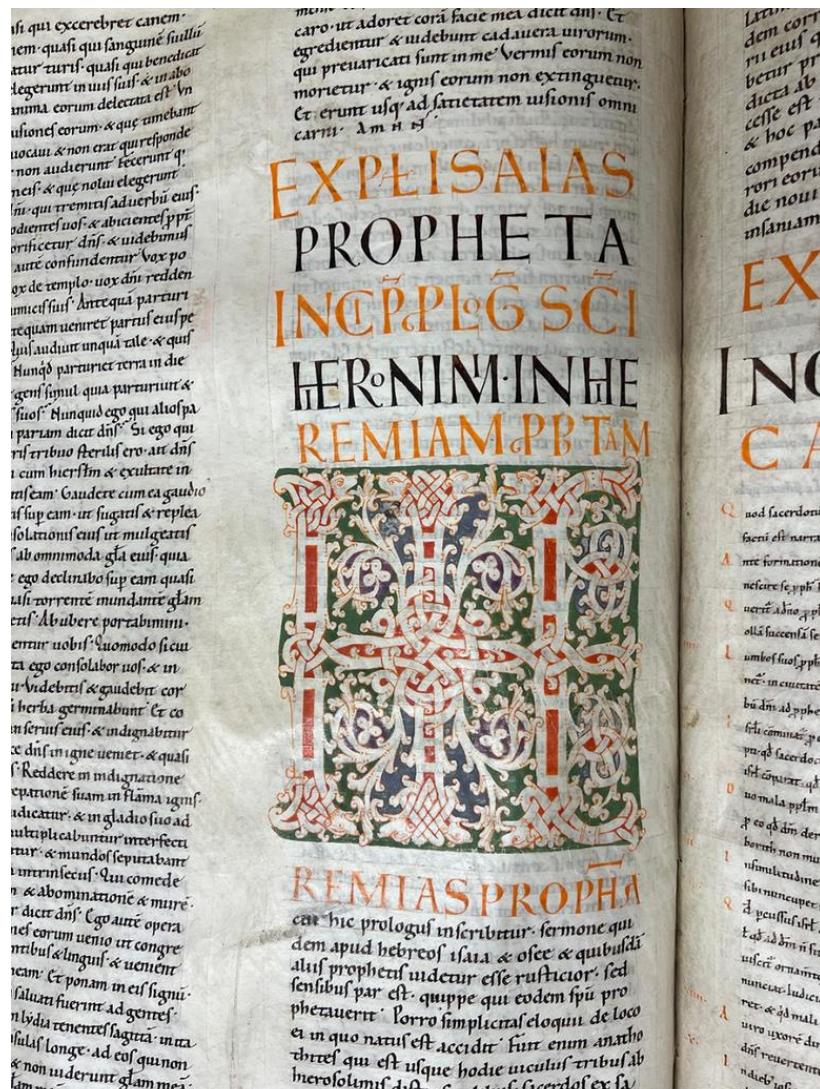 si qui excerebret canem·
nem· quasi qui sanguinē suillū
atur turis· quasi qui benedicat
legerunt in uiis suis· & in abo
anima eorum delectata est· Vn
usiones eorum· & quę timebant
uocaui & non erat qui responde
non audierunt· Fecerunt q·
meis· & quę nolui elegerunt·
dñi· qui tremitis ad uerbū eius·
odientes uos· & abicientes ppt̄
orificetur dñs· & uidebimus
autē confundentur· Vox po
ox de templo· uox dñi redden
inimicis suis· Antequā parturi
tequam ueniret partus eius pe
Quis audiuit unquā tale· & quis
Nunqd parturiet terra in die
gens simul quia parturiuit &
suos· Nunquid ego qui alios pa
pariam dicit dñs· Si ego qui
ris tribuo sterilis ero· ait dñs
cum hierslm̄ & exultate in
tis eam· Gaudete cum ea gaudio
is sup eam· ut sugatis & replea
solationis eius ut mulgeatis
ab omnimoda gła eius· quia
ego declinabo sup eam quasi
uasi torrentē inundantē głam
etis· Ab ubere portabimini·
entur uobis· Quomodo si cui
ta ego consolabor uos· & in
Videbitis & gaudebit cor
herba germinabunt· Et co
n seruis eius· & indignabitur
ce dñs in igne ueniet· & quasi
Reddere in indignatione
epationē suam in flāma ignis·
udicatur· & in gladio suo ad
multiplicabuntur interfecti
tur· & mundos se putabant
intrinsecus· Qui comede
& abominationē & murē·
r dicit dñs· Ego autē opera
nes eorum uenio ut congre
ntibus & linguis· & uenient
meam· Et ponam in eis signū·
saluati fuerint ad gentes·
n lydia tenentes sagittā· in ita
sulas longe· ad eos qui non
& non uiderunt głam meā·
caro· ut adoret corā facie mea dicit dñs· Et
egredientur & uidebunt cadauera uirorum·
qui preuaricati sunt in me· Vermis eorum non
morietur· & ignis eorum non extinguetur·
Et erunt usq· ad satietatem uisionis omni
carni· AmHN·
EXPŁ ISAIAS
PROPHETA
INCIP̄ PLOG̃ SC̄I
HIERONIM·IN HIE
REMIAM PPBTAM
HIE
REMIAS PROPHA
cui hic prologus inscribitur· sermone qui
dem apud hebreos isaia & osee & quibusdā
aliis prophetis uidetur esse rusticior· sed
sensibus par est· quippe qui eodem spū pro
phetauerit· Porro simplicitas eloquii de loco
ei in quo natus est accidit· Fuit enim anatho
thites qui est usque hodie uiculus tribus ab
hierosolimis
dem corr
rii eius q
betur pr
dicta ab
cesse est
& hoc pa
compend
rori eoru
die noui
insaniam
EX
INC
CA
Quod sacerdoti
facti est narra
Ante formatione
nescire se
olla succensa
Lumbos suos
Quo mala
borith non mu